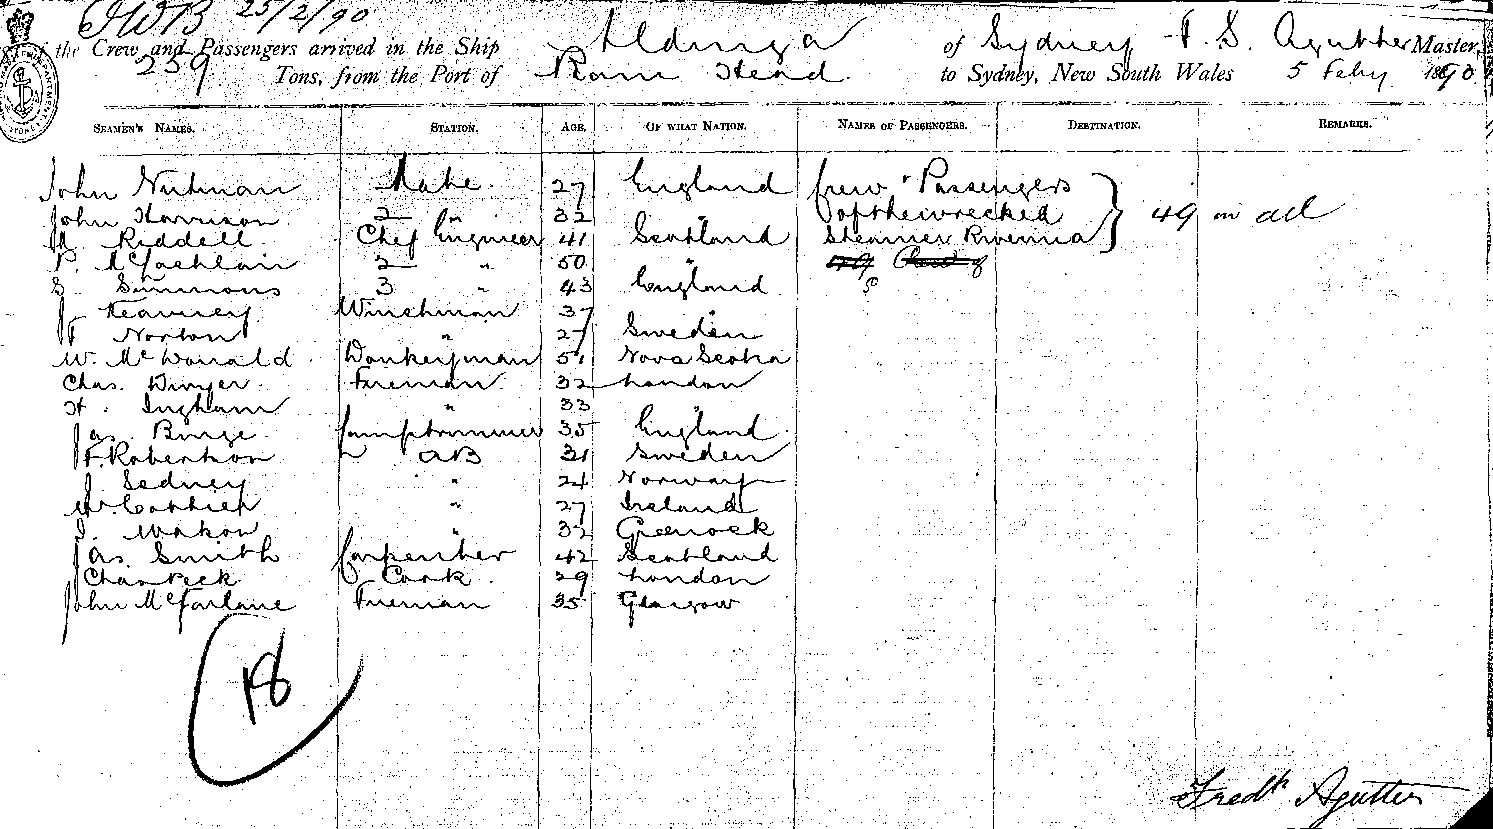 JWB 25/2/90
of the Crew and Passengers arrived in the Ship Aldinga of Sydney F. S. Agutter Master,
259 Tons, from the Port of Ram Head to Sydney, New South Wales 5 Feby 1890
SEAMEN'S NAMES. STATION. AGE. OF WHAT NATION. NAMES OF PASSENGERS. DESTINATION. REMARKS.
John Nutman Mate 27 England Crew & Passengers
John Harrison 2 " 32 " of the wrecked 49 in all
A Riddell Chef Engineer 41 Scotland Steamer Ravenna
P. McLachlain 2 " 50 "
S. Simmons 3 " 43 England
J Kearney Winchman 37 "
F Norton " 27 Sweden
W. McDonald Donkeyman 51 Nova Scotia
Chas. Dwyer Fireman 32 London
H. Ingham " 33 "
Jas. Binge Lamptrimmer 35 England
F. Robertson AB 31 Sweden
J Sedney " 24 Norway
" 27 Ireland
J. " 32 Greenock
Jas. Smith Carpenter 42 Scotland
Chas Peck Cook 29 London
John McFarlane Fireman 35 Glasgow
18
Fredk Agutter